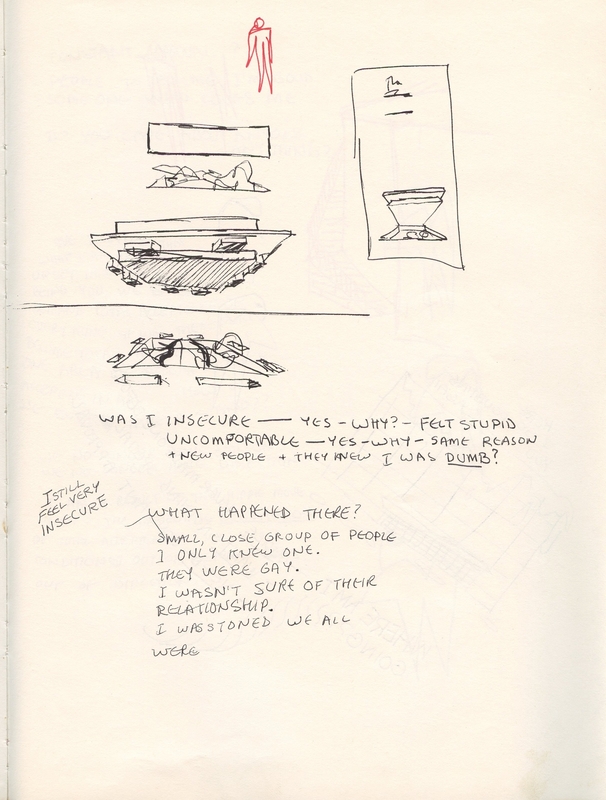 WAS I INSECURE — YES - WHY? - FELT STUPID
UNCOMFORTABLE — YES - WHY - SAME REASON
+ NEW PEOPLE + THEY KNEW I WAS DUMB?
I STILL
FEEL VERY
INSECURE
WHAT HAPPENED THERE?
SMALL, CLOSE GROUP OF PEOPLE
I ONLY KNEW ONE.
THEY WERE GAY.
I WASN'T SURE OF THEIR
RELATIONSHIP.
I WAS STONED WE ALL
WERE